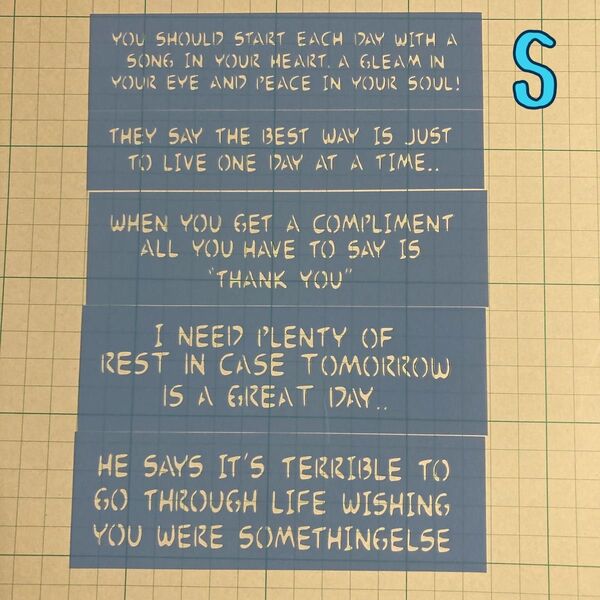 YOU SHOULD START EACH DAY WITH A
SONG IN YOUR HEART. A GLEAM IN
YOUR EYE AND PEACE IN YOUR SOUL!
S
THEY SAY THE BEST WAY IS JUST
TO LIVE ONE DAY AT A TIME..
WHEN YOU GET A COMPLIMENT
ALL YOU HAVE TO SAY IS
"THANK YOU"
I NEED PLENTY OF
REST IN CASE TOMORROW
IS A GREAT DAY..
HE SAYS IT'S TERRIBLE TO
GO THROUGH LIFE WISHING
YOU WERE SOMETHINGELSE